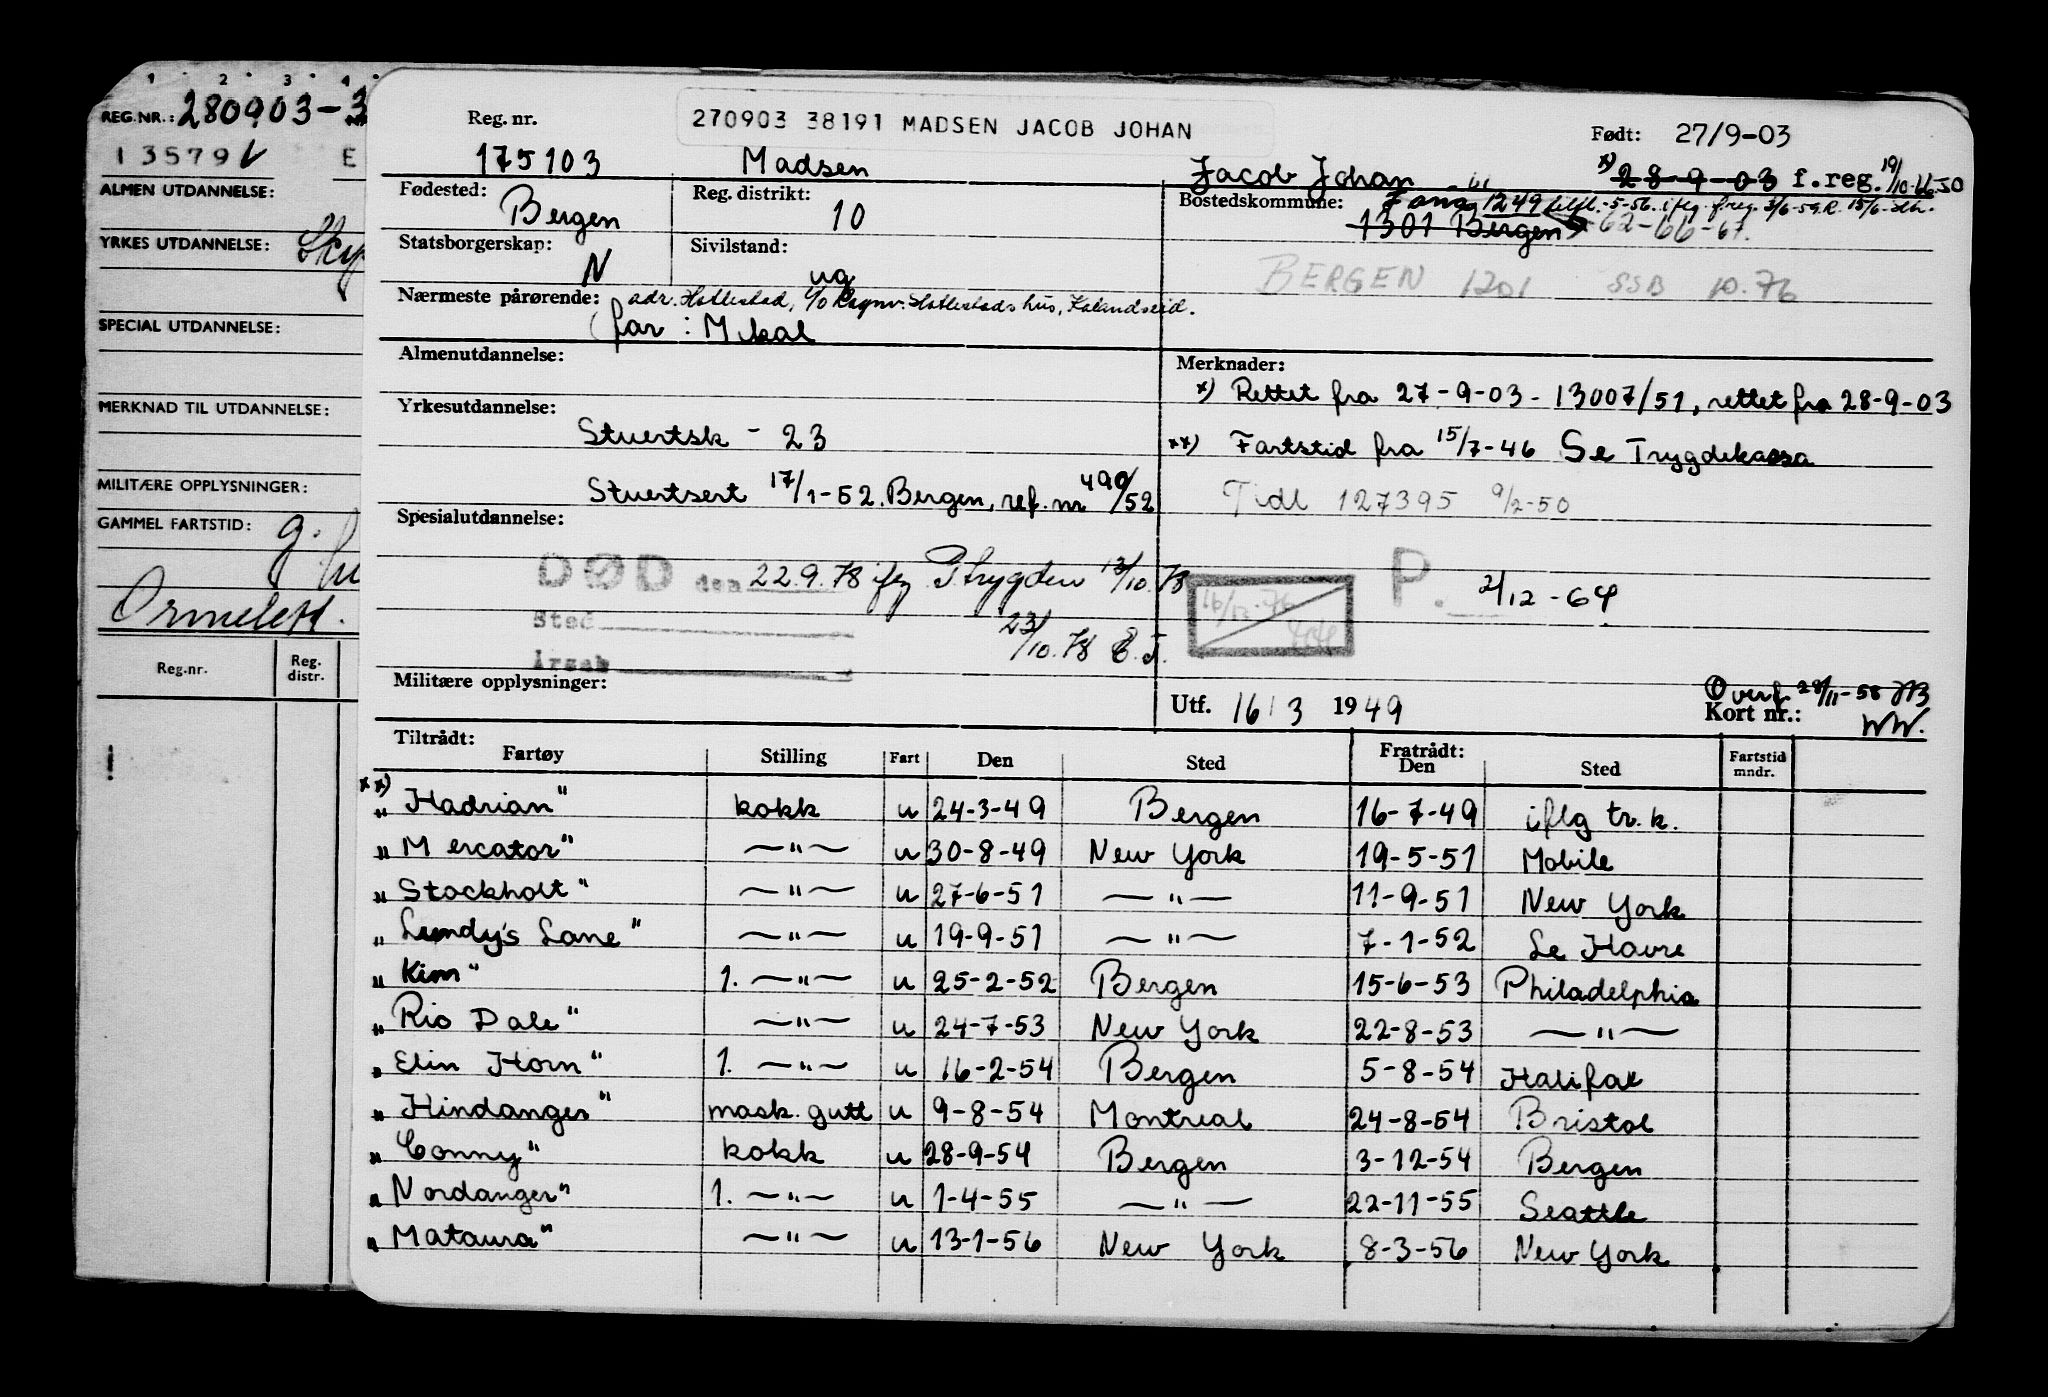 1 2 3 4
REG.NR.: 280903-3
13579 E
ALMEN UTDANNELSE:
YRKES UTDANNELSE:
SPECIAL UTDANNELSE:
MERKNAD TIL UTDANNELSE:
MILITÆRE OPPLYSNINGER:
GAMMEL FARTSTID: g.
Reg.nr. Reg. distr.
Reg. nr. 270903 38191 MADSEN JACOB JOHAN Født: 27/9-03
175103 Madsen Jacob Johan x) 28-9-03 f.reg. 19/10-66.50
Fødested: Bergen Reg. distrikt: 10 Bostedskommune: Fana 1249 tilfl.-5-56. iflg. f.reg. 3/6-59.R. 15/6-
1301 Bergen 62-66-67.
Statsborgerskap: N Sivilstand: ug
BERGEN 1201 SSB 10.76
Nærmeste pårørende: adr. Hatlestad, c/o Ragnv. Hatlestads hus, Kalandseid.
far: Mikal
Almenutdannelse: Merknader:
x) Rettet fra 27-9-03 - 13007/51, rettet fra 28-9-03
Yrkesutdannelse:
Stuertsk - 23 xx) Fartstid fra 15/7-46 Se Trygdekassa
Stuertsert 17/1-52, Bergen, ref. nr 490/52 Tidl 127395 9/2-50
Spesialutdannelse:
DØD den 22.9.78 ifg P.trygden 13/10.78 P. 2/12-64
Sted 23/10.78 E.T. 16/12.76
Årsak
Militære opplysninger: Utf. 16/3 1949 Overf 28/11-58 JB
Kort nr.: WW.
Tiltrådt: Fratrådt:
Fartøy Stilling Fart Den Sted Den Sted Fartstid mndr.
xx) "Hadrian" kokk u 24-3-49 Bergen 16-7-49 iflg tr.k.
"Mercator" -"- u 30-8-49 New York 19-5-51 Mobile
"Stockholt" -"- u 27-6-51 -"- 11-9-51 New York
"Lundy's Lane" -"- u 19-9-51 -"- 7-1-52 Le Havre
"Kim" 1. -"- u 25-2-52 Bergen 15-6-53 Philadelphia
"Rio Dale" -"- u 24-7-53 New York 22-8-53 -"-
"Elin Horn" 1. -"- u 16-2-54 Bergen 5-8-54 Halifax
"Hindanger" mask. gutt u 9-8-54 Montreal 24-8-54 Bristol
"Conny" kokk u 28-9-54 Bergen 3-12-54 Bergen
"Nordanger" 1. -"- u 1-4-55 -"- 22-11-55 Seattle
"Mataura" -"- u 13-1-56 New York 8-3-56 New York